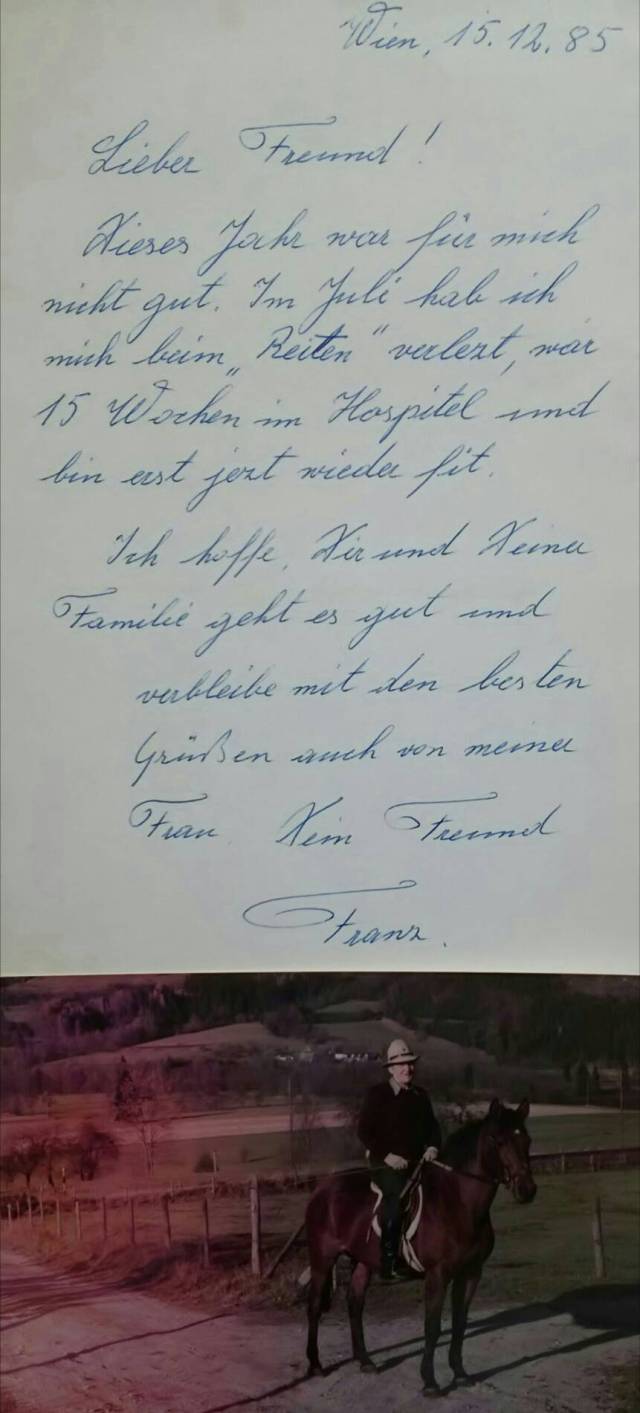 Wien, 15.12.85
Lieber Freund!
Dieses Jahr war für mich
nicht gut. Im Juli hab ich
mich beim „Reiten" verlezt, war
15 Wochen im Hospitel und
bin erst jezt wieder fit.
Ich hoffe, Dir und Deiner
Familie geht es gut und
verbleibe mit den besten
Grüßen auch von meiner
Frau. Dein Freund
Franz.